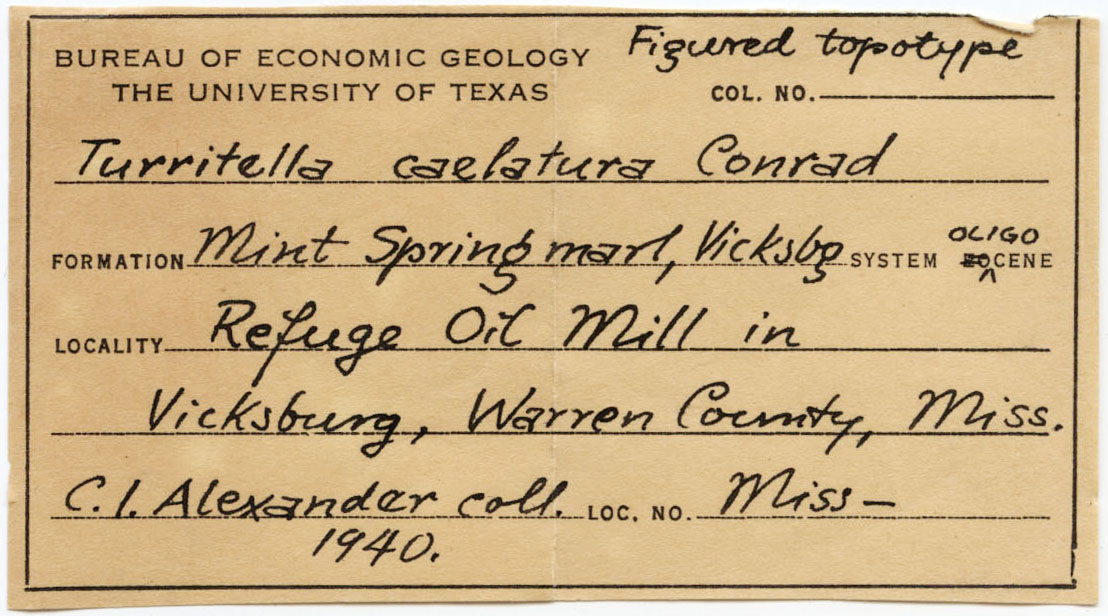 BUREAU OF ECONOMIC GEOLOGY
THE UNIVERSITY OF TEXAS
Figured topotype
COL. NO.
Turritella caelatura Conrad
FORMATION Mint Spring marl, Vicksbg SYSTEM EOCENE
OLIGO
LOCALITY Refuge Oil Mill in
Vicksburg, Warren County, Miss.
C.I. Alexander coll. LOC. NO. Miss—
1940.